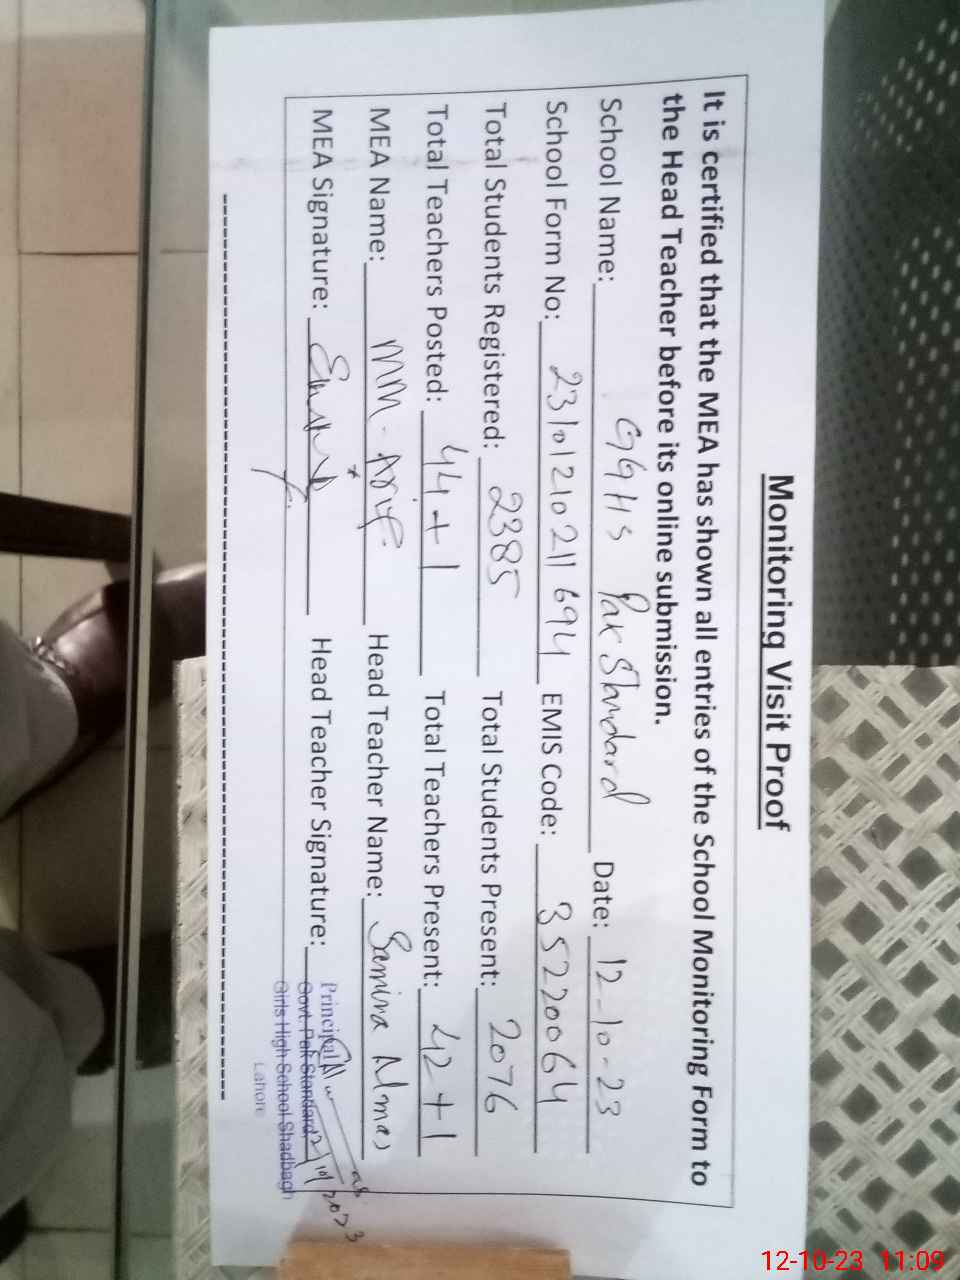 Monitoring Visit Proof
It is certified that the MEA has shown all entries of the School Monitoring Form to
the Head Teacher before its online submission.
School Name: GGHS Pak Standard Date: 12-10-23
School Form No: 23101210211694 EMIS Code: 35220064
Total Students Registered: 2385 Total Students Present: 2076
Total Teachers Posted: 44+1 Total Teachers Present: 42+1
MEA Name: MM. Arif Head Teacher Name: Samina Almas
MEA Signature: Head Teacher Signature:
Principal
Govt. Pak Standard, 12/10/2023
Girls High School Shadbagh
Lahore
12-10-23 11:09